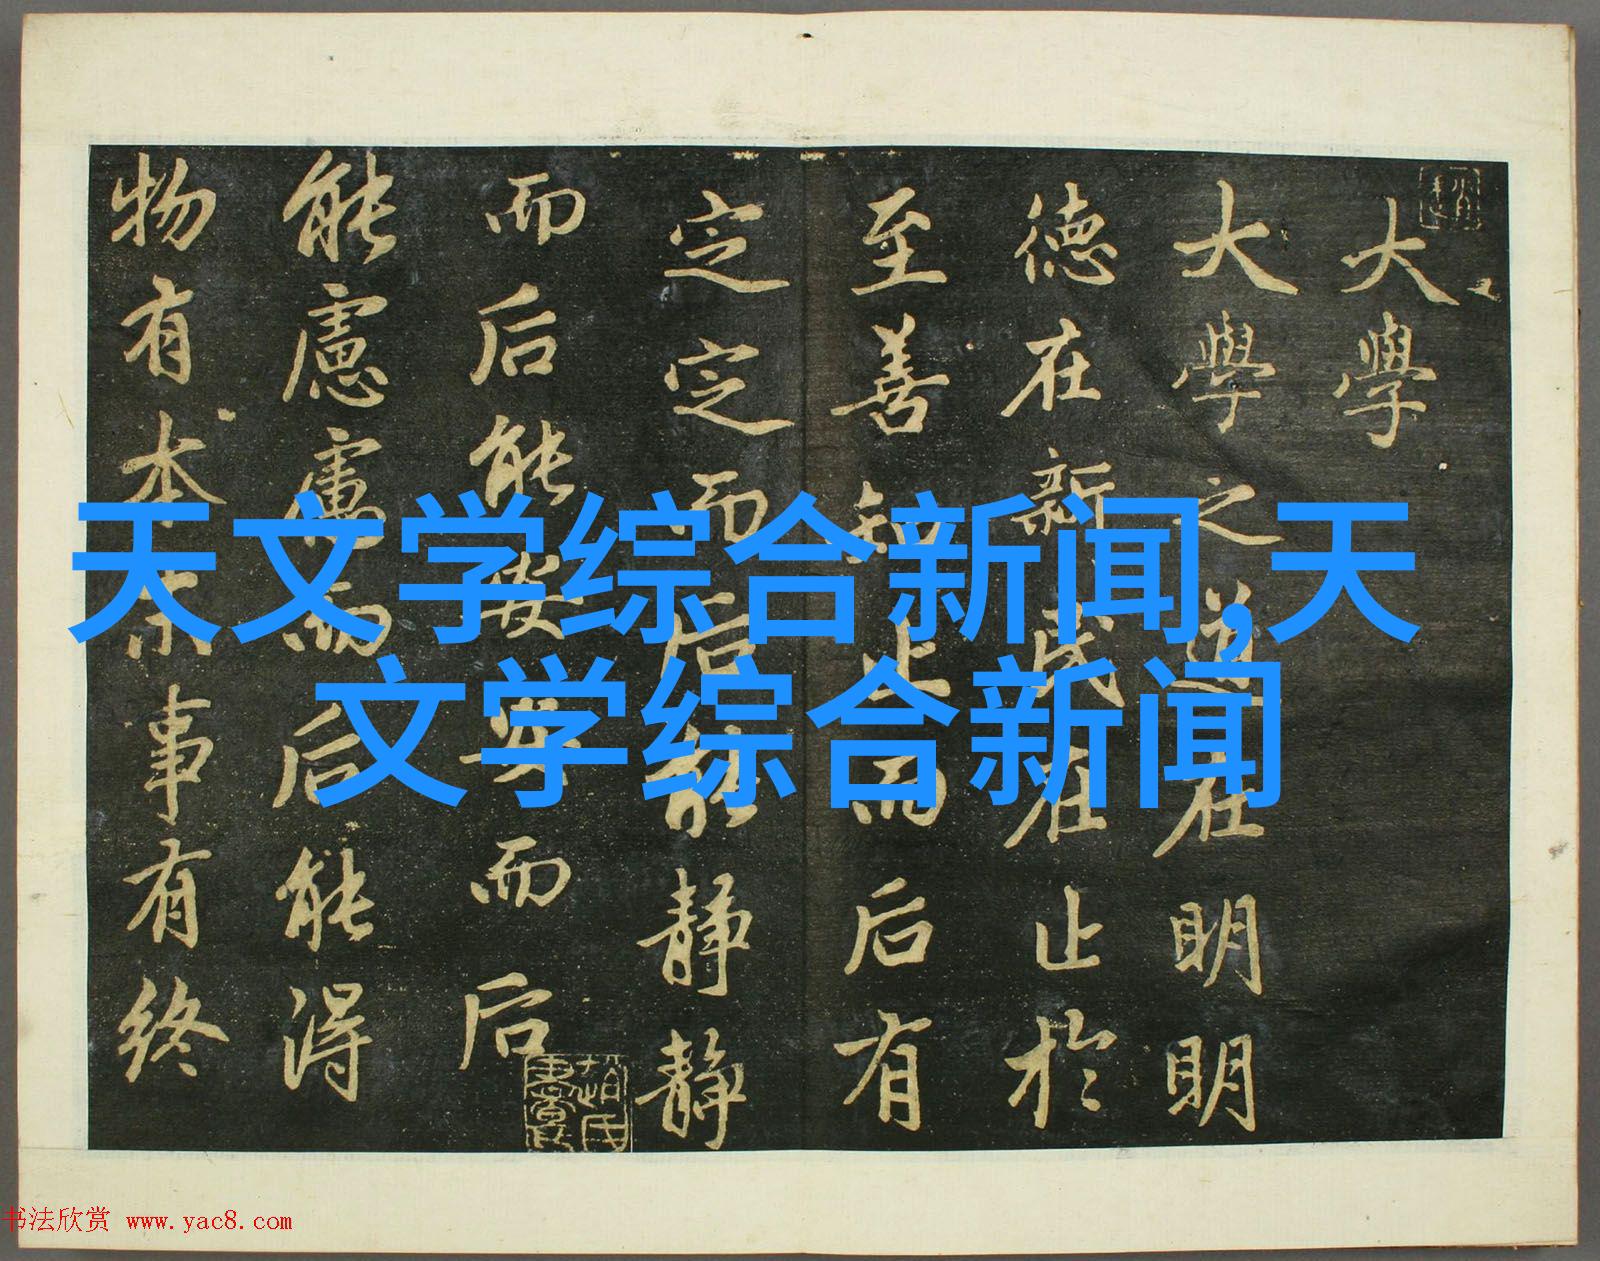 大學
大學之道在明明
德在新民在止於
至善知止而后有
定定而后能静静
而后能安安而后
能慮慮而后能得
物有本末事有終
天文学综合新闻,天
文学综合新闻
书法欣赏 www.yac8.com